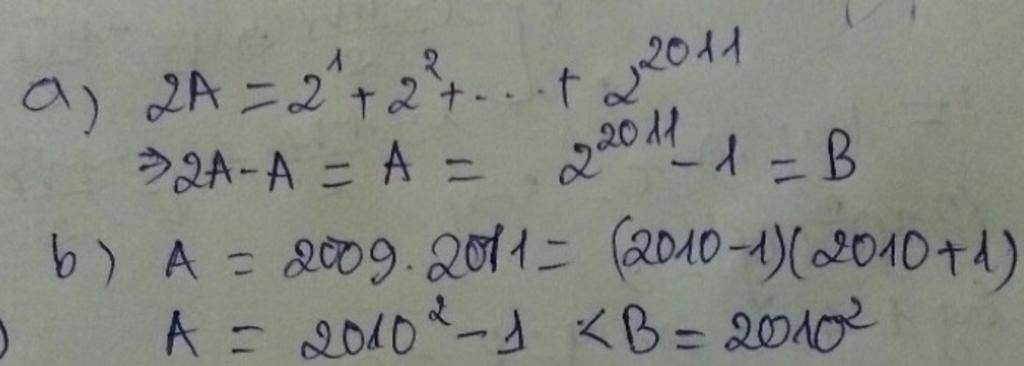 a) 2A = 2¹ + 2² + ... + 2²⁰¹¹
⇒ 2A - A = A = 2²⁰¹¹ - 1 = B
b) A = 2009.2011 = (2010-1)(2010+1)
A = 2010² - 1 < B = 2010²